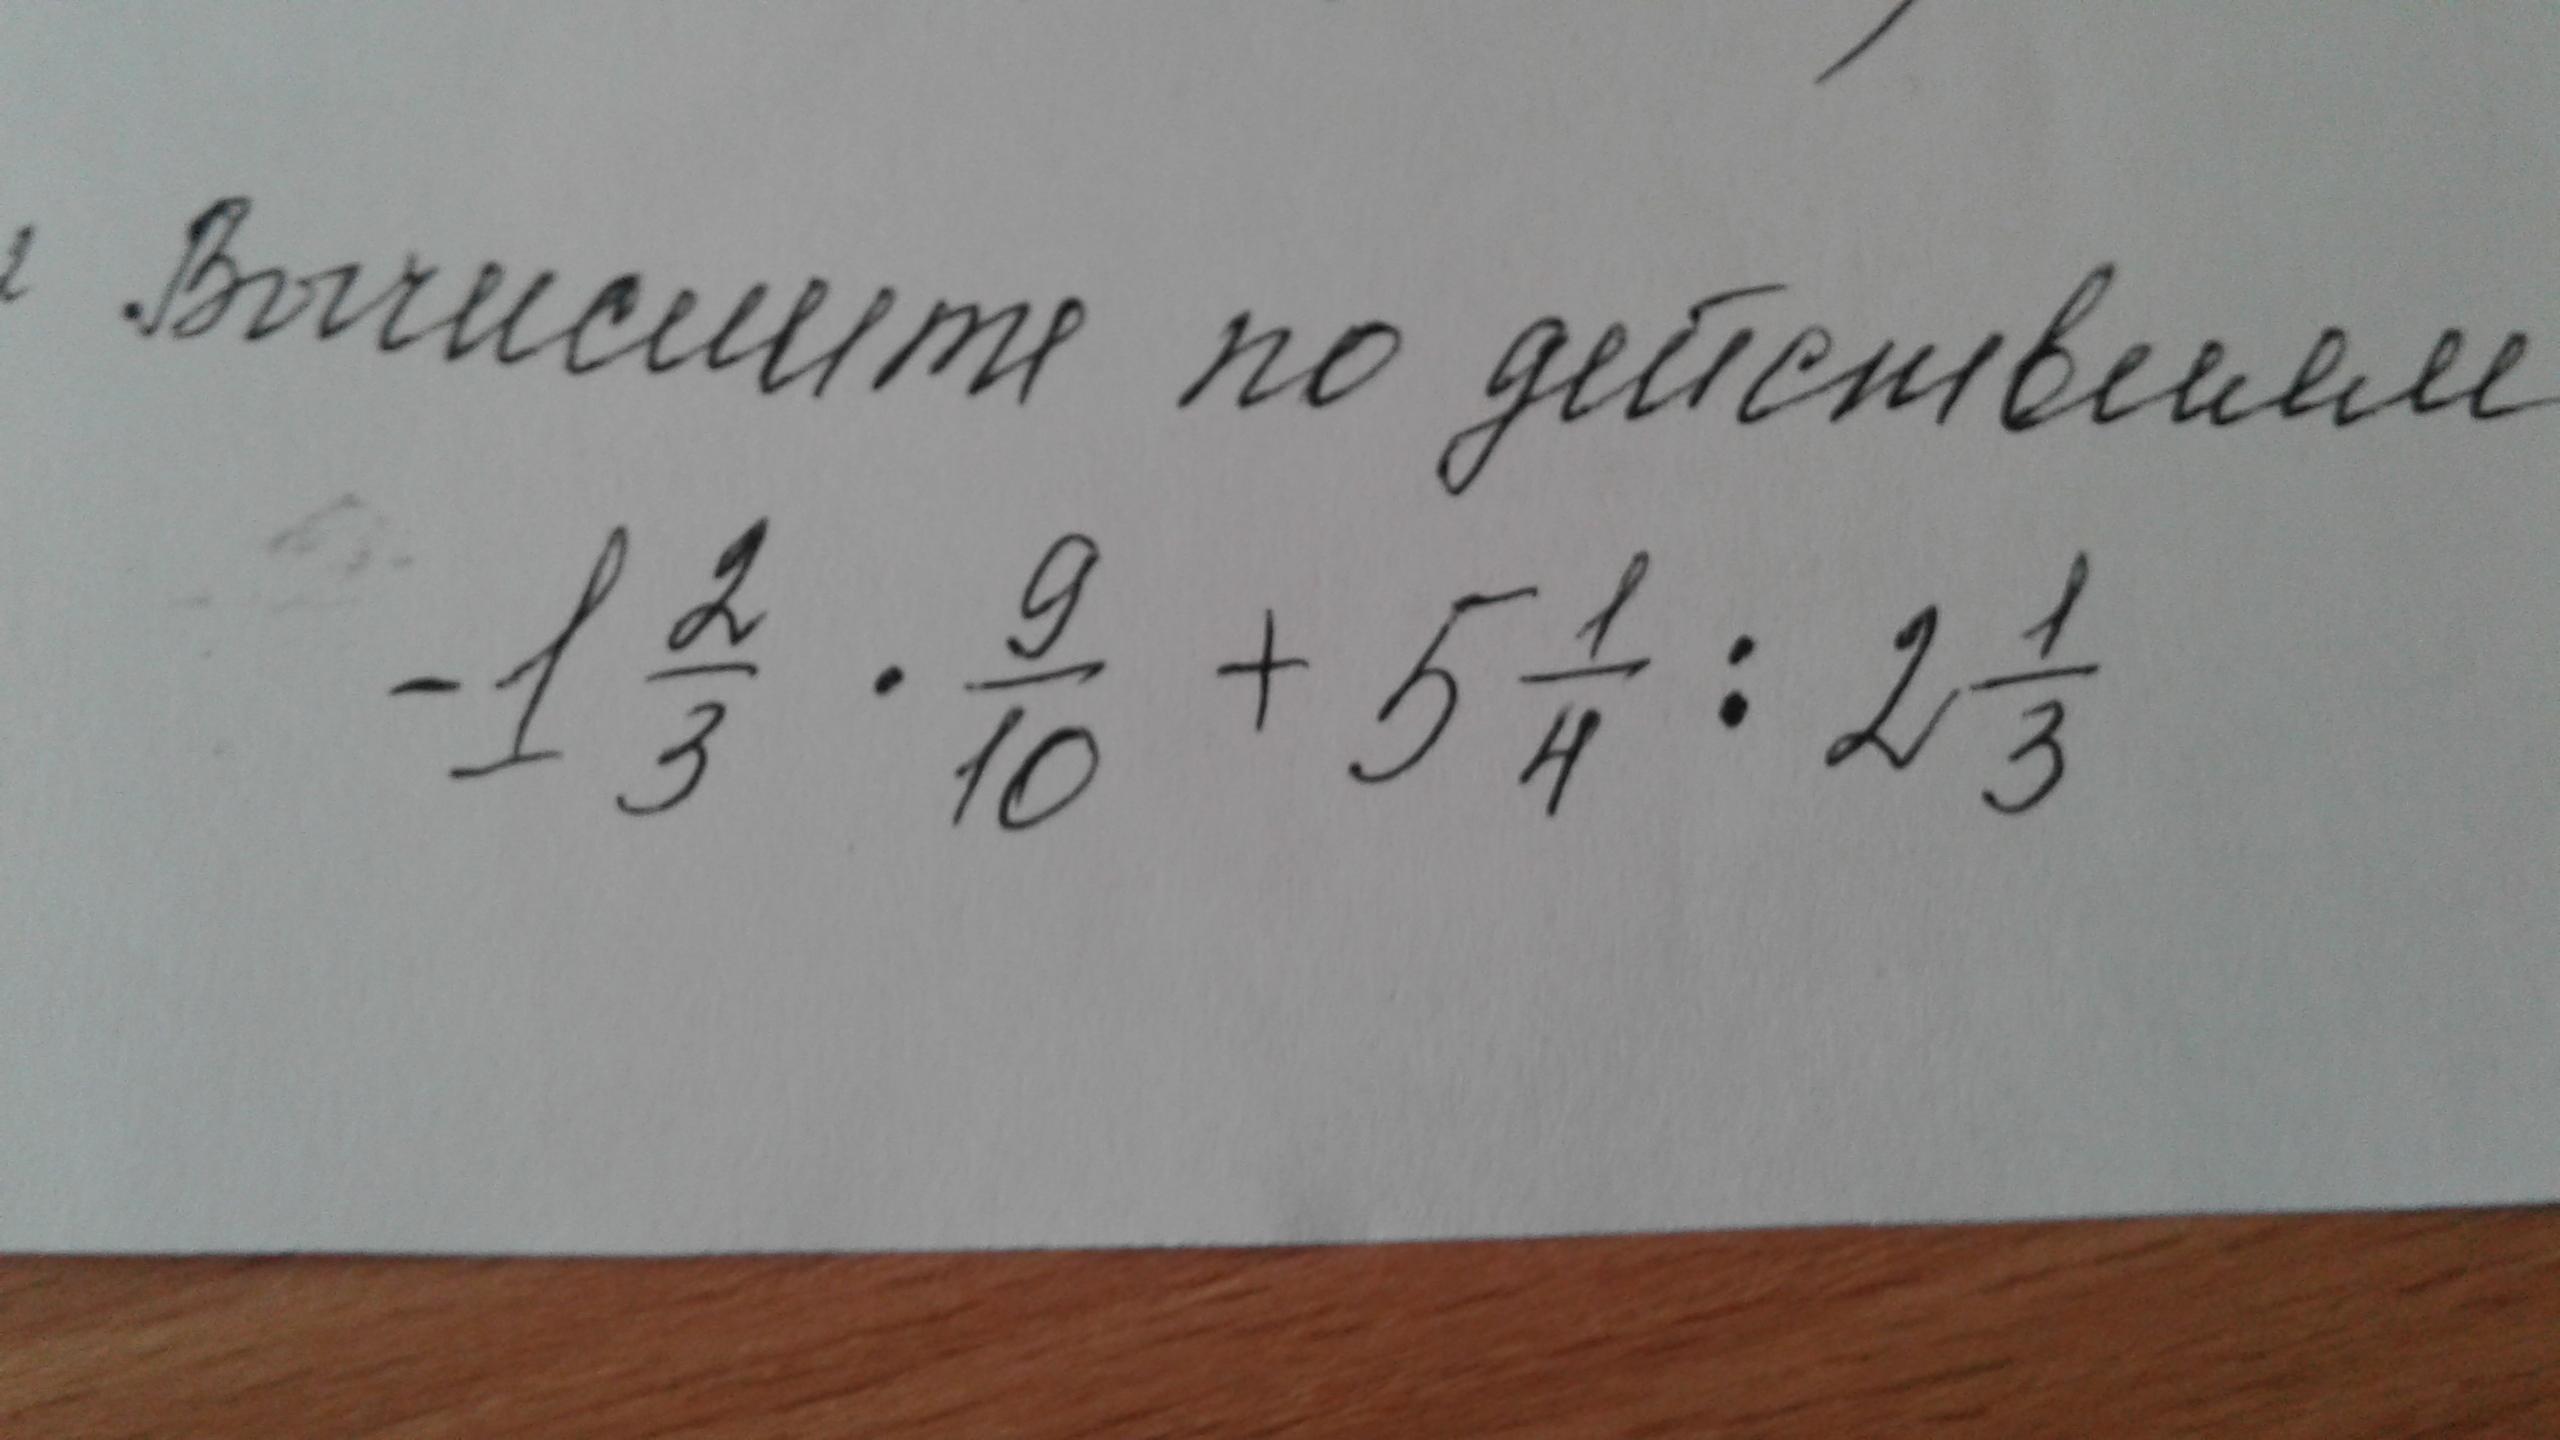 . Вычислите по действиям
-1 2/3 · 9/10 + 5 1/4 : 2 1/3